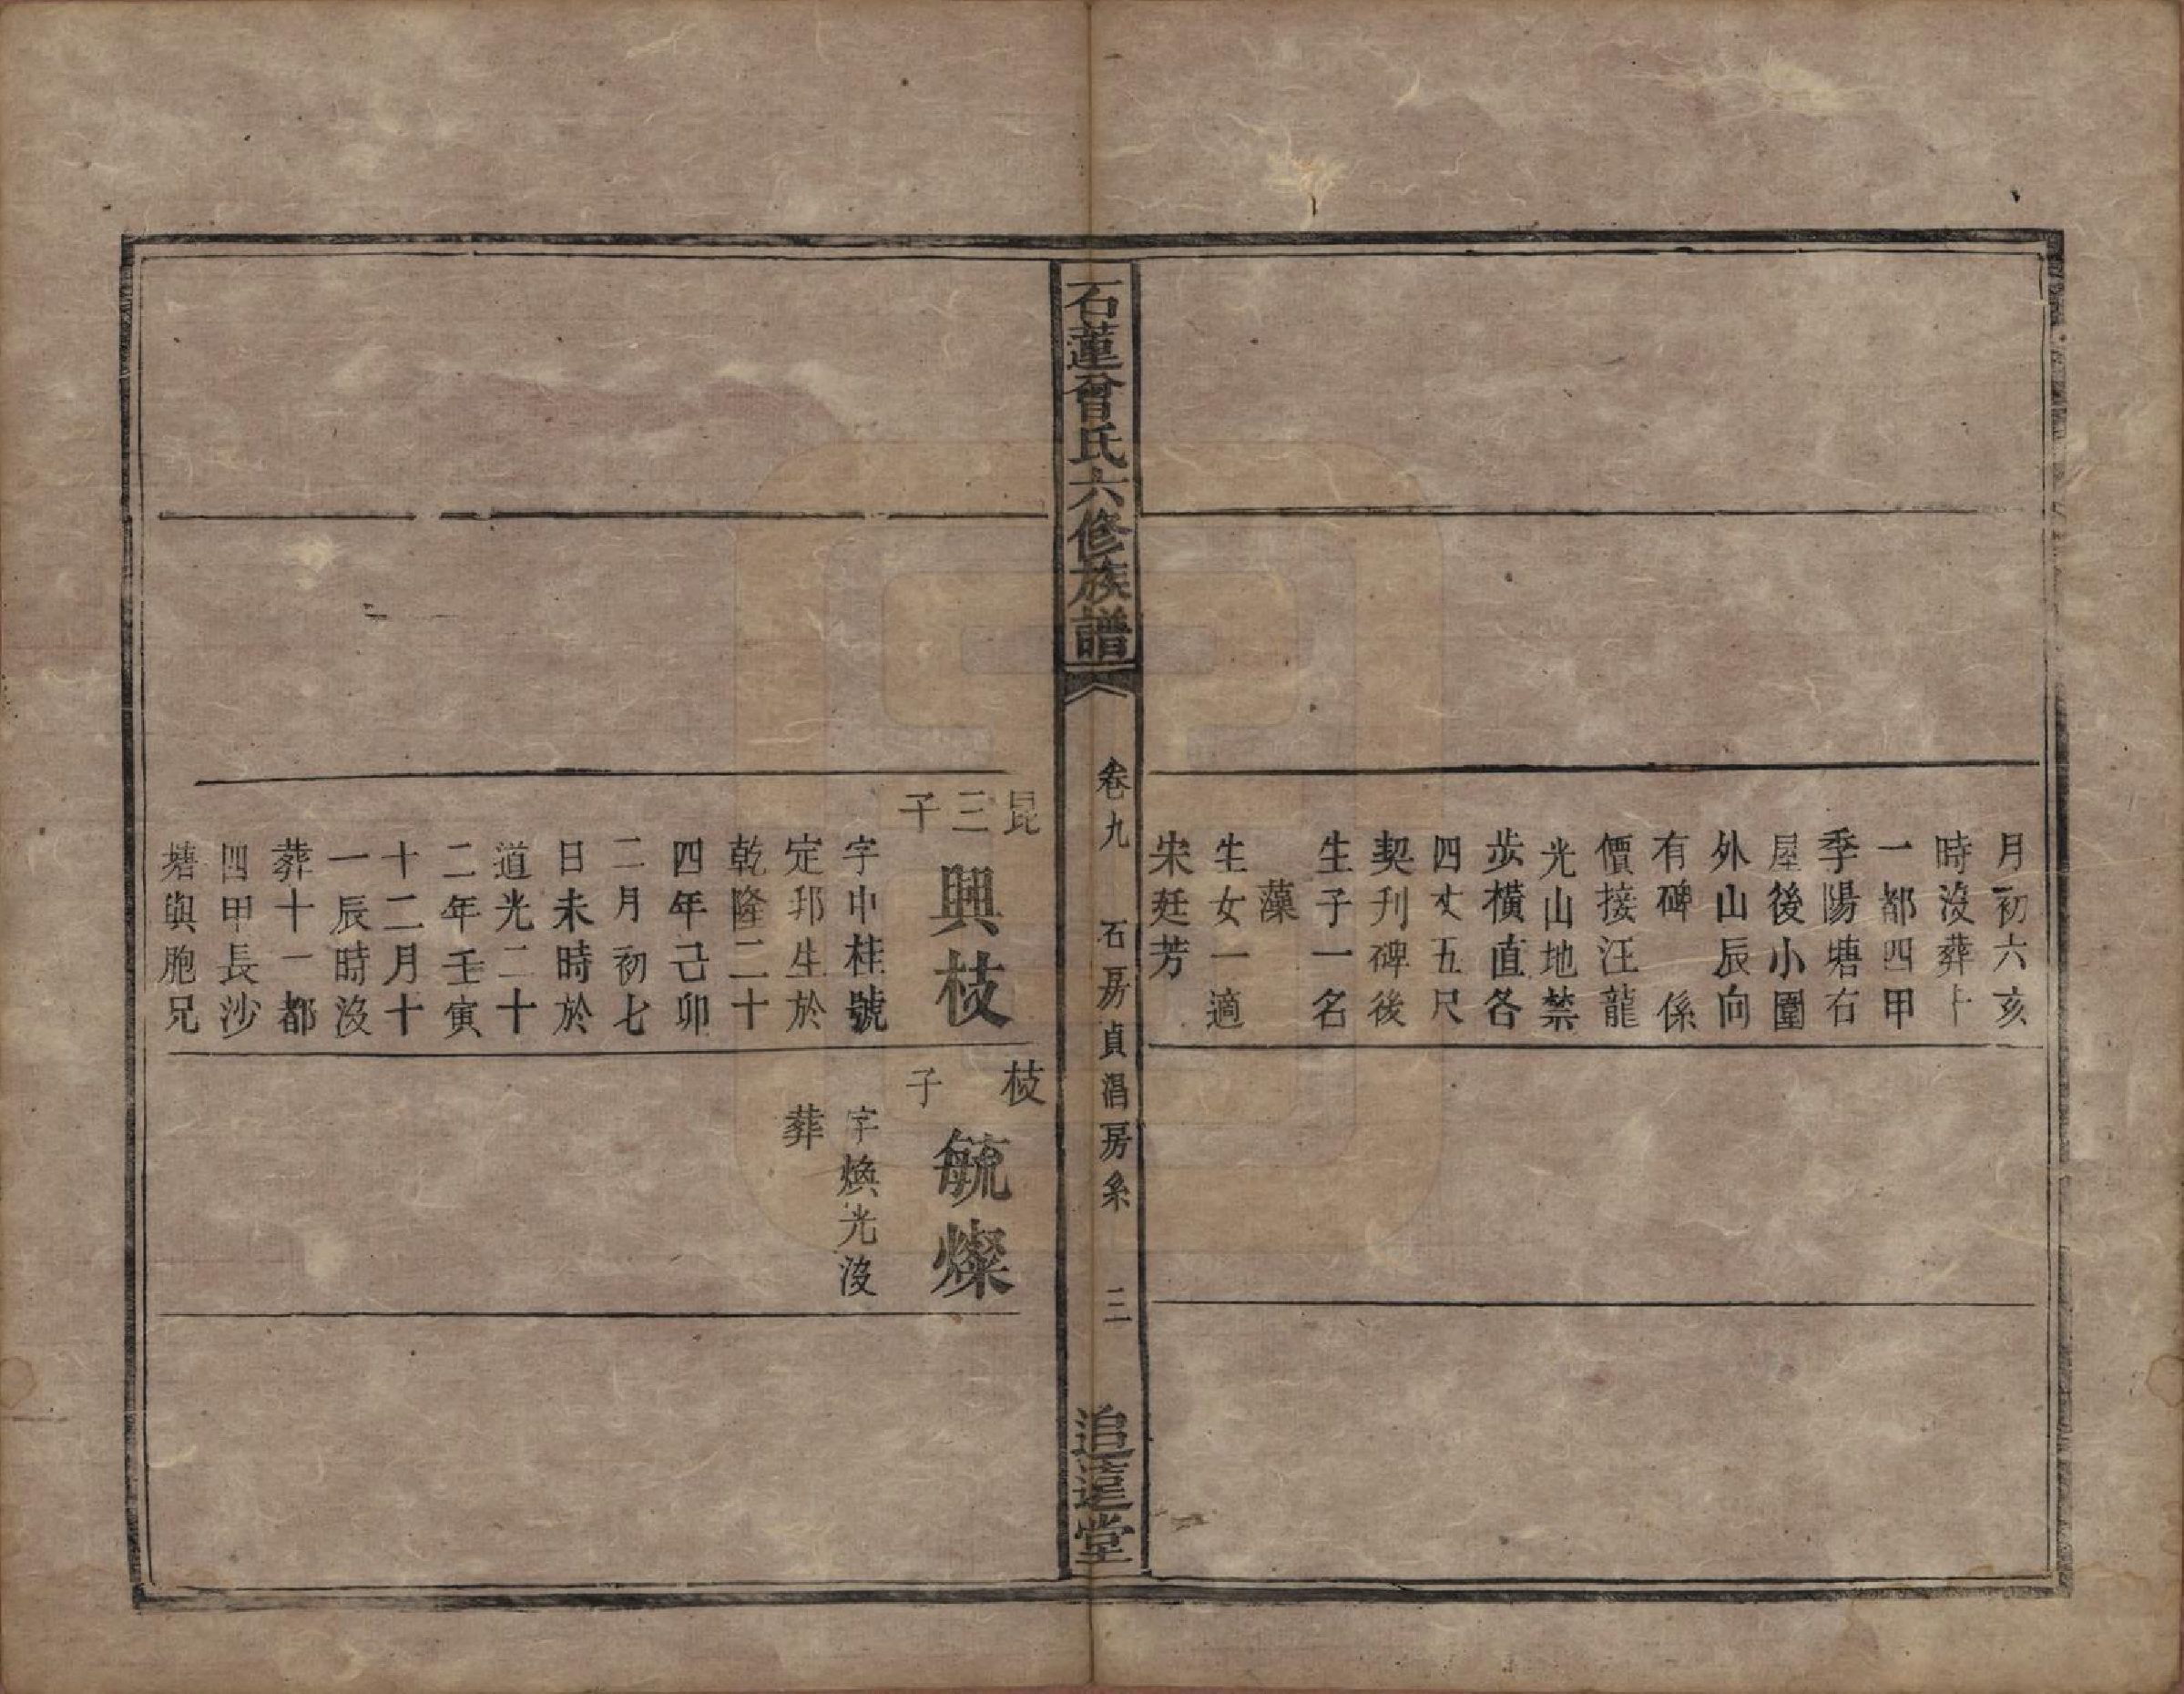 月初六亥
時沒葬十
一都四甲
季陽塘右
屋後小圍
外山辰向
有碑　係
價接汪龍
光山地禁
步橫直各
四丈五尺
契刋碑後
生子一名
藻
生女一適
宋廷芳
石蓮曾氏六修族譜
卷九
石房貞湻房系
三
追遠堂
昆三子
興枝
字中桂號
定邦生於
乾隆二十
四年己卯
二月初七
日未時於
道光二十
二年壬寅
十二月十
一辰時沒
葬十一都
四甲長沙
塘與胞兄
枝子
毓燦
字煥光沒
葬